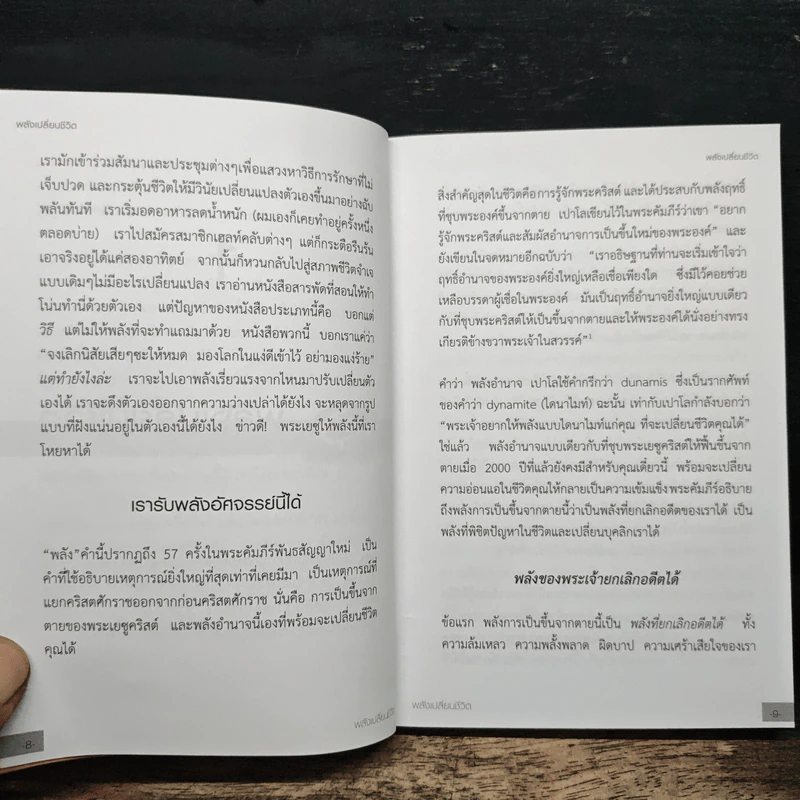 พลังเปลี่ยนชีวิต
เรามักเข้าร่วมสัมนาและประชุมต่างๆเพื่อแสวงหาวิธีการรักษาที่ไม่
เจ็บปวด และกระตุ้นชีวิตให้มีวินัยเปลี่ยนแปลงตัวเองขึ้นมาอย่างฉับ
พลันทันที เราเริ่มอดอาหารลดน้ำหนัก (ผมเองก็เคยทำอยู่ครั้งหนึ่ง
ตลอดบ่าย) เราไปสมัครสมาชิกเฮลท์คลับต่างๆ แต่ก็กระดือรืนร้น
เอาจริงอยู่ได้แค่สองอาทิตย์ จากนั้นก็หวนกลับไปสู่สภาพชีวิตจำเจ
แบบเดิมๆไม่มีอะไรเปลี่ยนแปลง เราอ่านหนังสือสารพัดที่สอนให้ทำ
โน่นทำนี่ด้วยตัวเอง แต่ปัญหาของหนังสือประเภทนี้คือ บอกแต่
วิธี แต่ไม่ให้พลังที่จะทำแถมมาด้วย หนังสือพวกนี้ บอกเราแค่ว่า
“จงเลิกนิสัยเสียๆซะให้หมด มองโลกในแง่ดีเข้าไว้ อย่ามองแง่ร้าย”
แต่ทำยังไงล่ะ เราจะไปเอาพลังเรี่ยวแรงจากไหนมาปรับเปลี่ยนตัว
เองได้ เราจะดึงตัวเองออกจากความว่างเปล่าได้ยังไง จะหลุดจากรูป
แบบที่ฝังแน่นอยู่ในตัวเองนี้ได้ยังไง ข่าวดี! พระเยซูให้พลังนี้ที่เรา
โหยหาได้
เรารับพลังอัศจรรย์นี้ได้
“พลัง”คำนี้ปรากฏถึง 57 ครั้งในพระคัมภีร์พันธสัญญาใหม่ เป็น
คำที่ใช้อธิบายเหตุการณ์ยิ่งใหญ่ที่สุดเท่าที่เคยมีมา เป็นเหตุการณ์ที่
แยกคริสตศักราชออกจากก่อนคริสตศักราช นั่นคือ การเป็นขึ้นจาก
ตายของพระเยซูคริสต์ และพลังอำนาจนี้เองที่พร้อมจะเปลี่ยนชีวิต
คุณได้
พลังเปลี่ยนชีวิต
-8-
พลังเปลี่ยนชีวิต
สิ่งสำคัญสุดในชีวิตคือการรู้จักพระคริสต์ และได้ประสบกับพลังฤทธิ์
ที่ชุบพระองค์ขึ้นจากตาย เปาโลเขียนไว้ในพระคัมภีร์ว่าเขา “อยาก
รู้จักพระคริสต์และสัมผัสอำนาจการเป็นขึ้นใหม่ของพระองค์” และ
ยังเขียนในจดหมายอีกฉบับว่า “เราอธิษฐานที่ท่านจะเริ่มเข้าใจว่า
ฤทธิ์อำนาจของพระองค์ยิ่งใหญ่เหลือเชื่อเพียงใด ซึ่งมีไว้คอยช่วย
เหลือบรรดาผู้เชื่อในพระองค์ มันเป็นฤทธิ์อำนาจยิ่งใหญ่แบบเดียว
กับที่ชุบพระคริสต์ให้เป็นขึ้นจากตายและให้พระองค์ได้นั่งอย่างทรง
เกียรติข้างขวาพระเจ้าในสวรรค์”¹
คำว่า พลังอำนาจ เปาโลใช้คำกรีกว่า dunamis ซึ่งเป็นรากศัพท์
ของคำว่า dynamite (ไดนาไมท์) ฉะนั้น เท่ากับเปาโลกำลังบอกว่า
“พระเจ้าอยากให้พลังแบบไดนาไมท์แก่คุณ ที่จะเปลี่ยนชีวิตคุณได้”
ใช่แล้ว พลังอำนาจแบบเดียวกับที่ชุบพระเยซูคริสต์ให้ฟื้นขึ้นจาก
ตายเมื่อ 2000 ปีที่แล้วยังคงมีสำหรับคุณเดี๋ยวนี้ พร้อมจะเปลี่ยน
ความอ่อนแอในชีวิตคุณให้กลายเป็นความเข้มแข็ง พระคัมภีร์อธิบาย
ถึงพลังการเป็นขึ้นจากตายนี้ว่าเป็นพลังที่ยกเลิกอดีตของเราได้ เป็น
พลังที่พิชิตปัญหาในชีวิตและเปลี่ยนบุคลิกเราได้
พลังของพระเจ้ายกเลิกอดีตได้
ข้อแรก พลังการเป็นขึ้นจากตายนี้เป็น พลังที่ยกเลิกอดีตได้ ทั้ง
ความล้มเหลว ความพลั้งพลาด ผิดบาป ความเศร้าเสียใจของเรา
พลังเปลี่ยนชีวิต
-9-